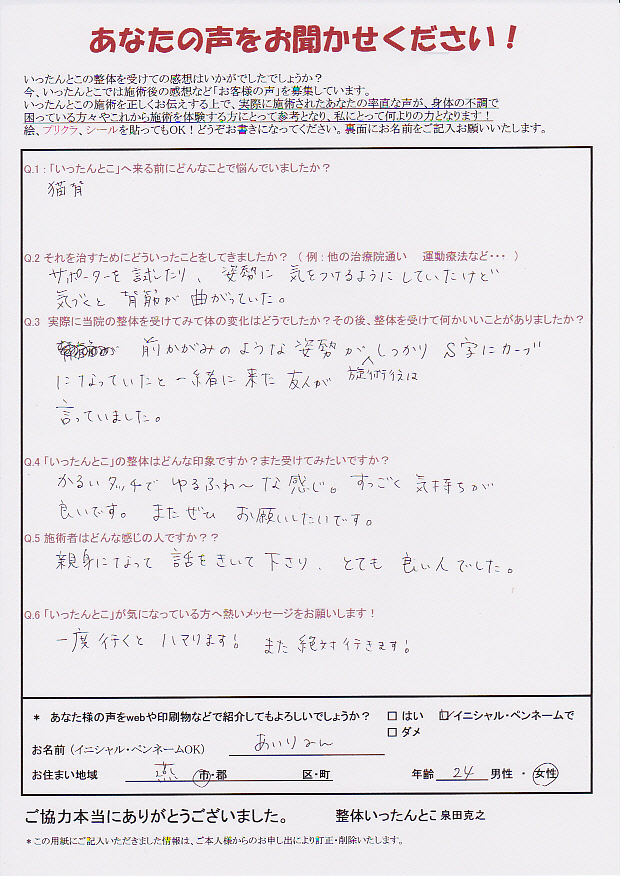 あなたの声をお聞かせください！
いったんとこの整体を受けての感想はいかがでしたでしょうか？
今、いったんとこでは施術後の感想など「お客様の声」を募集しています。
いったんとこの施術を正しくお伝えする上で、実際に施術されたあなたの率直な声が、身体の不調で
困っている方々やこれから施術を体験する方にとって参考となり、私にとって何よりの力となります！
絵、プリクラ、シールを貼ってもOK！どうぞお書きになってください。裏面にお名前をご記入お願いいたします。
Q.1：「いったんとこ」へ来る前にどんなことで悩んでいましたか？
猫背
Q.2 それを治すためにどういったことをしてきましたか？（例：他の治療院通い 運動療法など・・・ ）
サポーターを試したり、姿勢に気をつけるようにしていたけど
気づくと背筋が曲がっていた。
Q.3 実際に当院の整体を受けてみて体の変化はどうでしたか？その後、整体を受けて何かいいことがありましたか？
前かがみのような姿勢がしっかりS字にカーブ
になっていたと一緒に来た友人が施術後は
言っていました。
Q.4「いったんとこ」の整体はどんな印象ですか？また受けてみたいですか？
かるいタッチでゆるふわ〜な感じ。すっごく気持ちが
良いです。またぜひお願いしたいです。
Q.5 施術者はどんな感じの人ですか？？
親身になって話をきいて下さり、とても良い人でした。
Q.6「いったんとこ」が気になっている方へ熱いメッセージをお願いします！
一度行くとハマります！また絶対行きます！
* あなた様の声をwebや印刷物などで紹介してもよろしいでしょうか？ □ はい ☑イニシャル・ペンネームで
□ ダメ
お名前（イニシャル・ペンネームOK） あいりーん
お住まい地域 市・郡 区・町 年齢 24 男性 ・ 女性
ご協力本当にありがとうございました。 整体いったんとこ 泉田克之
*この用紙にご記入いただきました情報は、ご本人様からのお申し出により訂正・削除いたします。